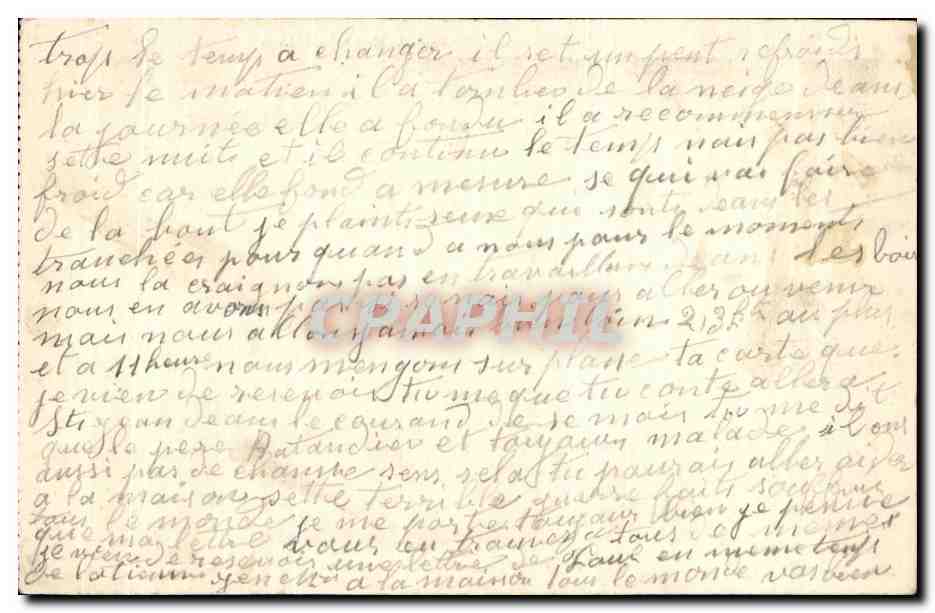 trop le temp a changer il set un peut refroidi
hier le matien il a tombeo de la neige deans
la journée elle a fondu il a recommenncer
sette nuits et il continu le temp nais pas bien
froid car elle fond a mesure se qui vas faire
de la bout je plaint seux que sonts deans les
tranchées pourquand a nous pour le moments
nous la craignon pas en travaillan deans les bois
nous en avons pour aller ou venir
mais nous allons 2, 3 h au plus
et a 11 heure nous mengons sur plasse ta carte que
je vien de resevoir tu me que tu conte aller a
St jean deans le courand de se mois tu me di
que le pere Batandier et toujours malade
aussi pas de chanse sens sela tu pourais aller aider
a la maison sette terrible guerre faits soufrir
tous le monde je me porte toujours bien je pensse
que ma letre vous en trouvera tous de meme
je vien de resevoir une letre de en meme temp
de a la maison tous le monde vas bien
CPAPHIL